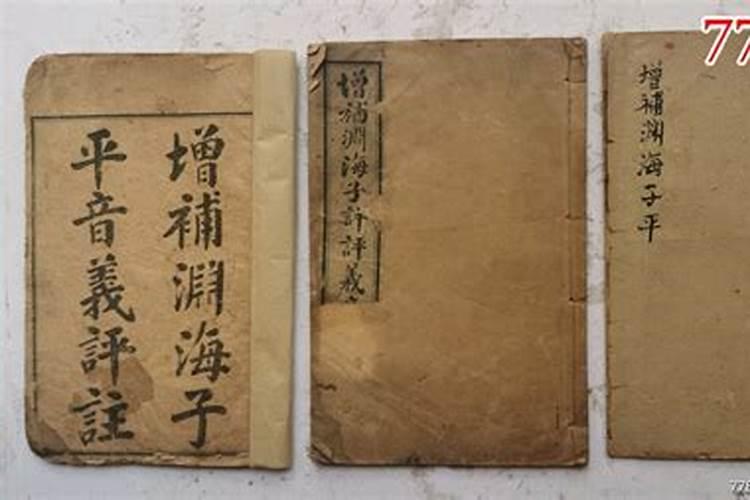 增補淵海子
平音義評註
增補淵海子
評義
增補渊海子平
77
778